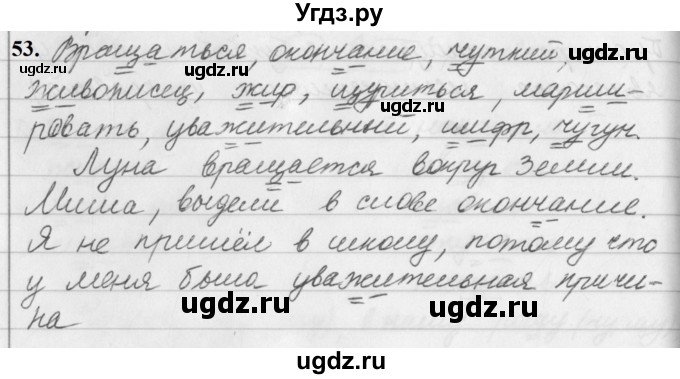 Угдз.ру
53. Вращаться, окончание, чуткий,
ugdz.ru ugdz.ru
живописец, жир, щуриться, марши-
ugdz.ru ugdz.ru
ровать, уважительный, шифр, чугун.
Луна вращается вокруг Земли.
ugdz.ru ugdz.ru
Миша, выдели в слове окончание.
Я не пришёл в школу, потому что
у меня была уважительная причи-
ugdz.ru ugdz.ru
на
ugdz.ru